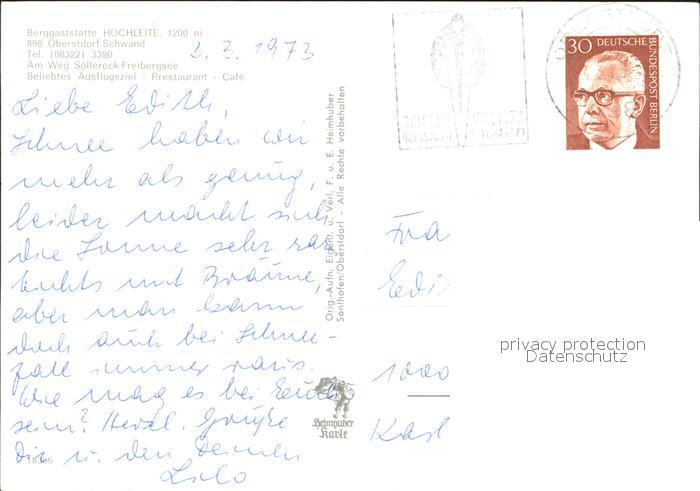 Berggaststätte HOCHLEITE, 1200 m
898 Oberstdorf-Schwand
Tel. (08322) 3390
Am Weg Söllereck-Freibergsee
Beliebtes Ausflugsziel - Rrestaurant - Café
2.3.1973
Liebe Edith,
Schnee haben wir
mehr als genug,
leider macht sich
die Sonne sehr rar
Nichts mit Bräune,
aber man kann
doch auch bei Schnee-
fall immer raus.
Wie mag es bei Euch
sein? Herzl. Grüße
Dir u. den Deinen
Lilo
18366
Orig.-Aufn. Eigent. u. Verl. F. u. E. Heimhuber
Sonthofen/Oberstdorf - Alle Rechte vorbehalten
Heimhuber
Karte
30 DEUTSCHE
BUNDESPOST BERLIN
Fra
Edi
1000
privacy protection
Datenschutz